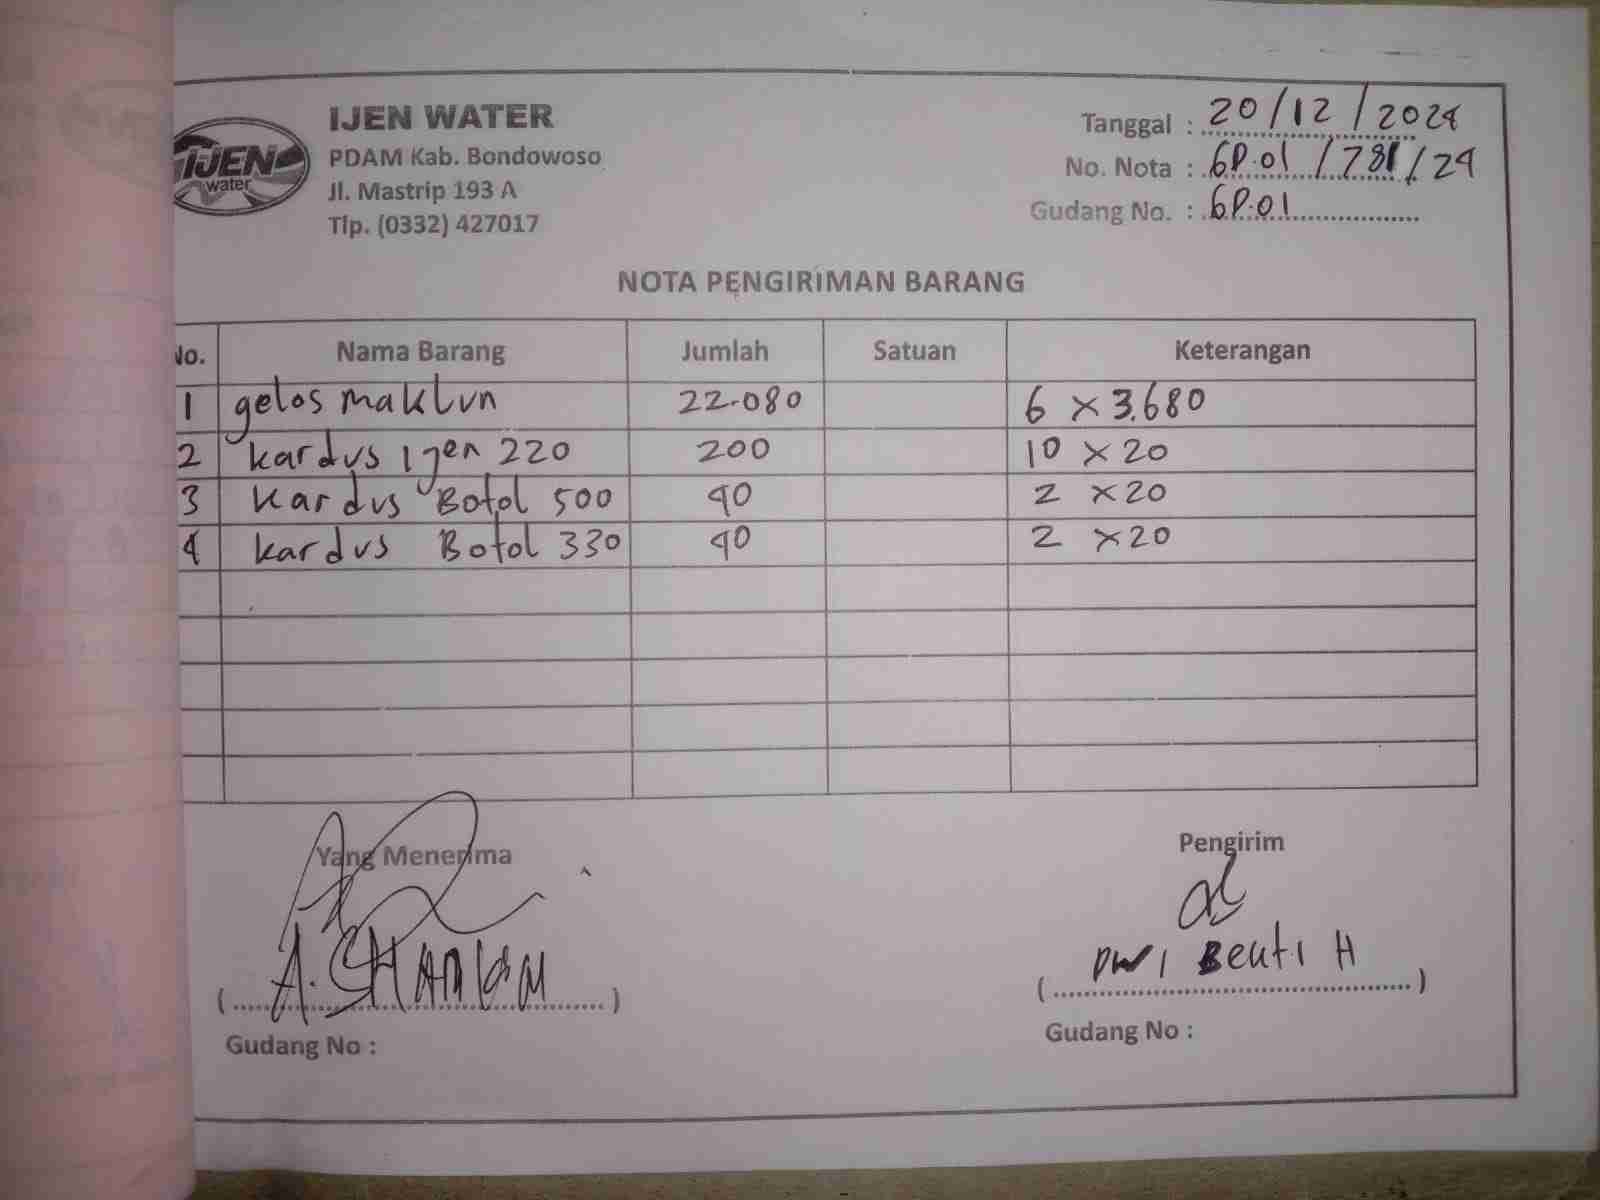 IJEN water
IJEN WATER
PDAM Kab. Bondowoso
Jl. Mastrip 193 A
Tlp. (0332) 427017
Tanggal : 20/12/2024
No. Nota : GP.01/781/24
Gudang No. : GP.01
NOTA PENGIRIMAN BARANG
No. Nama Barang Jumlah Satuan Keterangan
1 gelas maklun 22.080 6 x 3.680
2 kardus Ijen 220 200 10 x 20
3 kardus Botol 500 40 2 x 20
4 kardus Botol 330 40 2 x 20
Yang Menerima Pengirim
DWI Beuti H
( A. ) ( )
Gudang No : Gudang No :